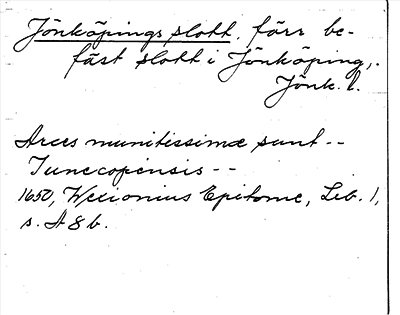 Jönköpings slott, förr be-
fäst slott i Jönköping,
Jönk. l.
Arces munitissimæ sunt --
Junecopensis --
1650, Wexionius Epitome, Lib. 1,
s. A 8 b.